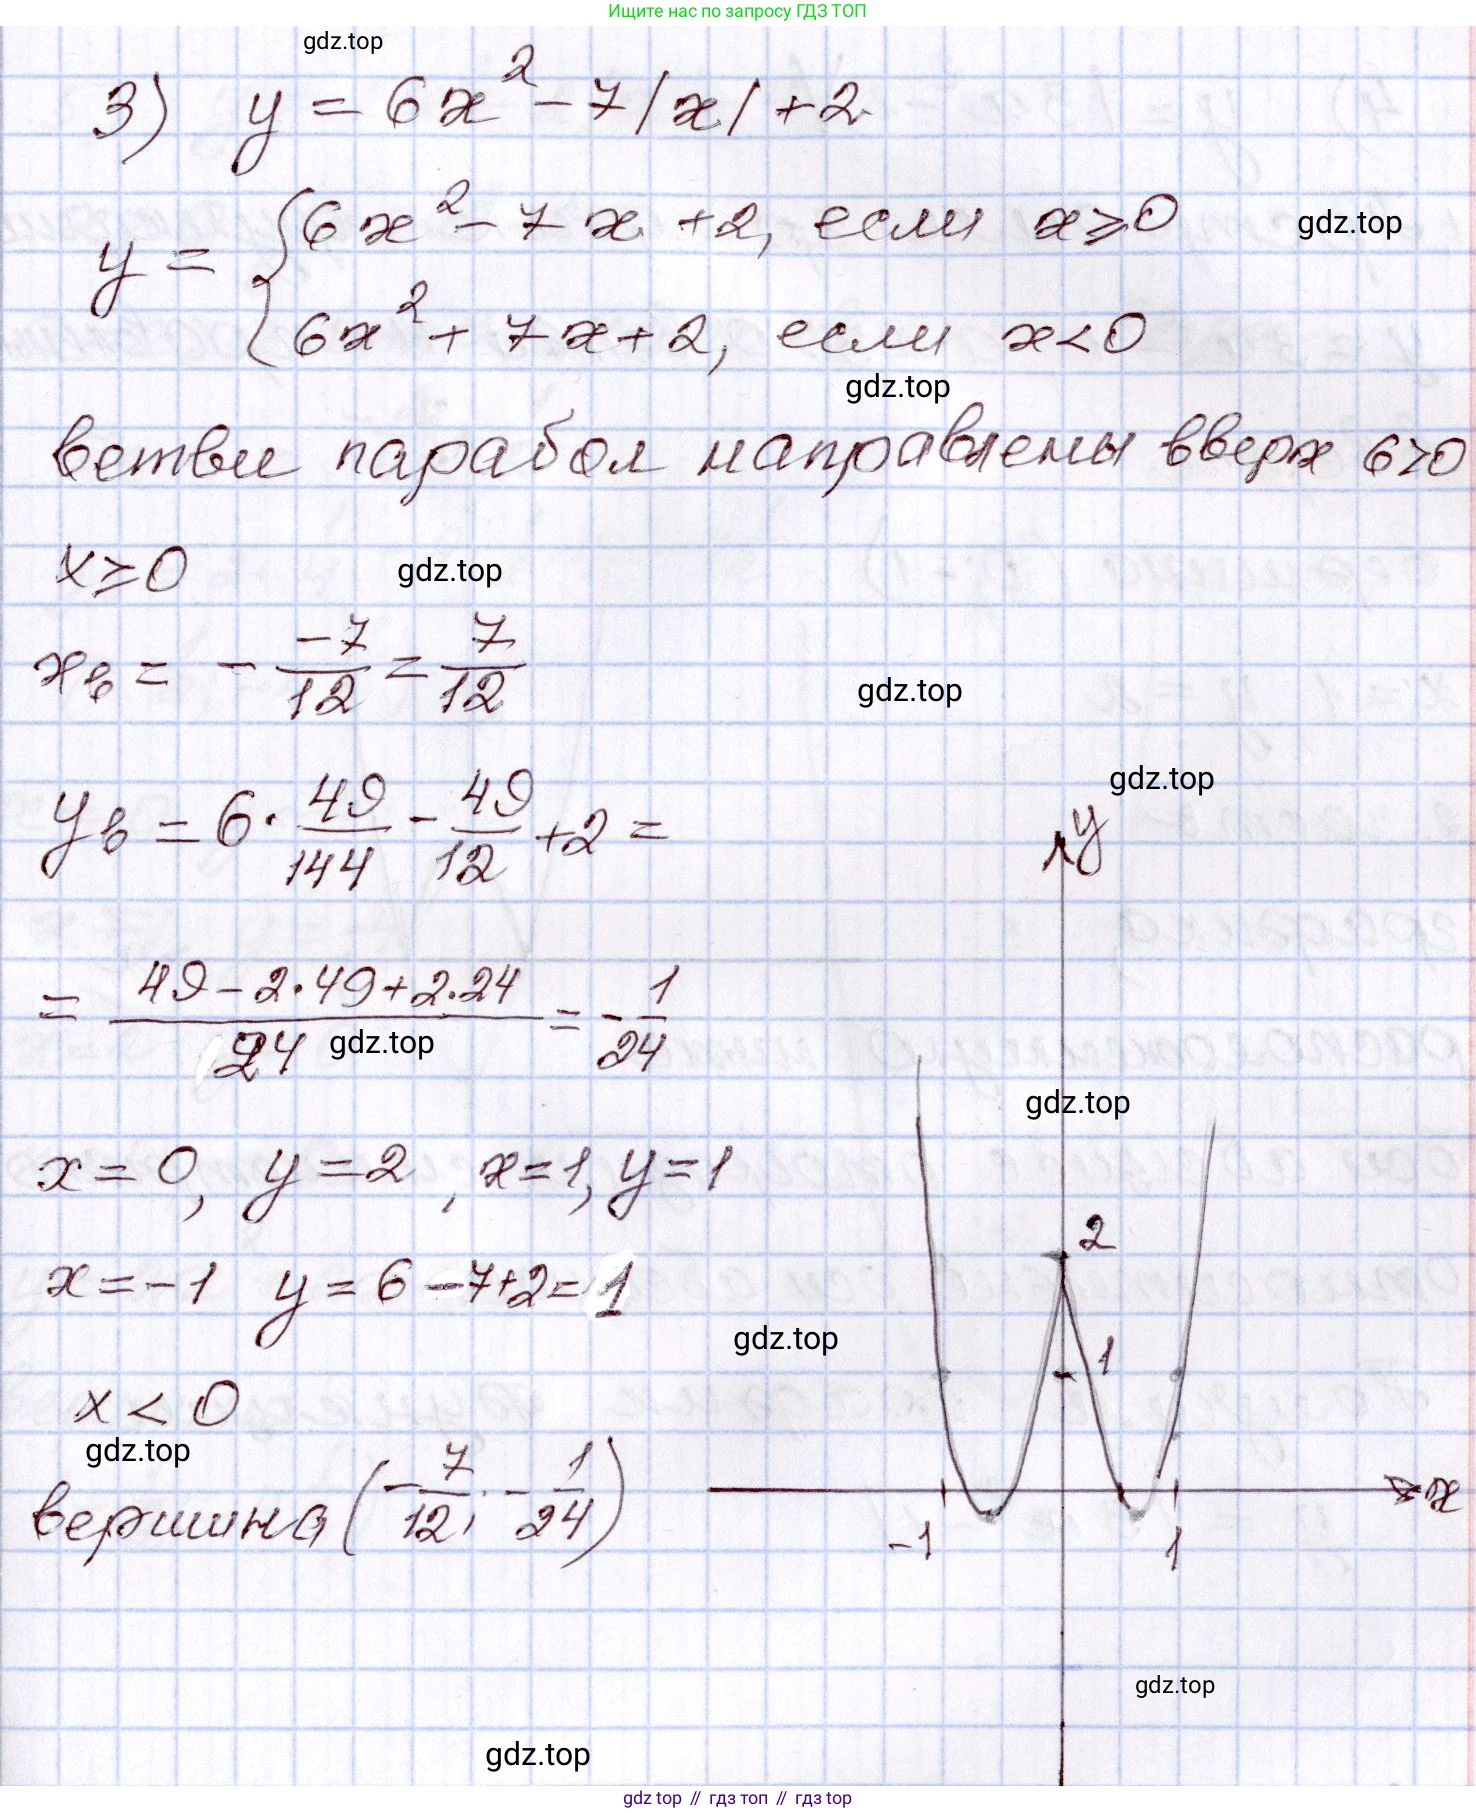 Ищите нас по запросу ГДЗ ТОП
gdz.top
3) y = 6x² - 7|x| + 2
y = { 6x² - 7x + 2, если x ≥ 0
gdz.top
6x² + 7x + 2, если x < 0
gdz.top
ветви парабол направлены вверх 6>0
x ≥ 0
gdz.top
xв = - -7/12 = 7/12
gdz.top
gdz.top
yв = 6 · 49/144 - 49/12 + 2 =
y
= (49 - 2·49 + 2·24)/24 = - 1/24
gdz.top
gdz.top
x = 0, y = 2, x = 1, y = 1
2
x = -1 y = 6 - 7 + 2 = 1
gdz.top
1
x < 0
gdz.top
вершина (- 7/12; - 1/24)
x
-1
1
gdz.top
gdz.top
gdz.top // гдз топ // gdz.top